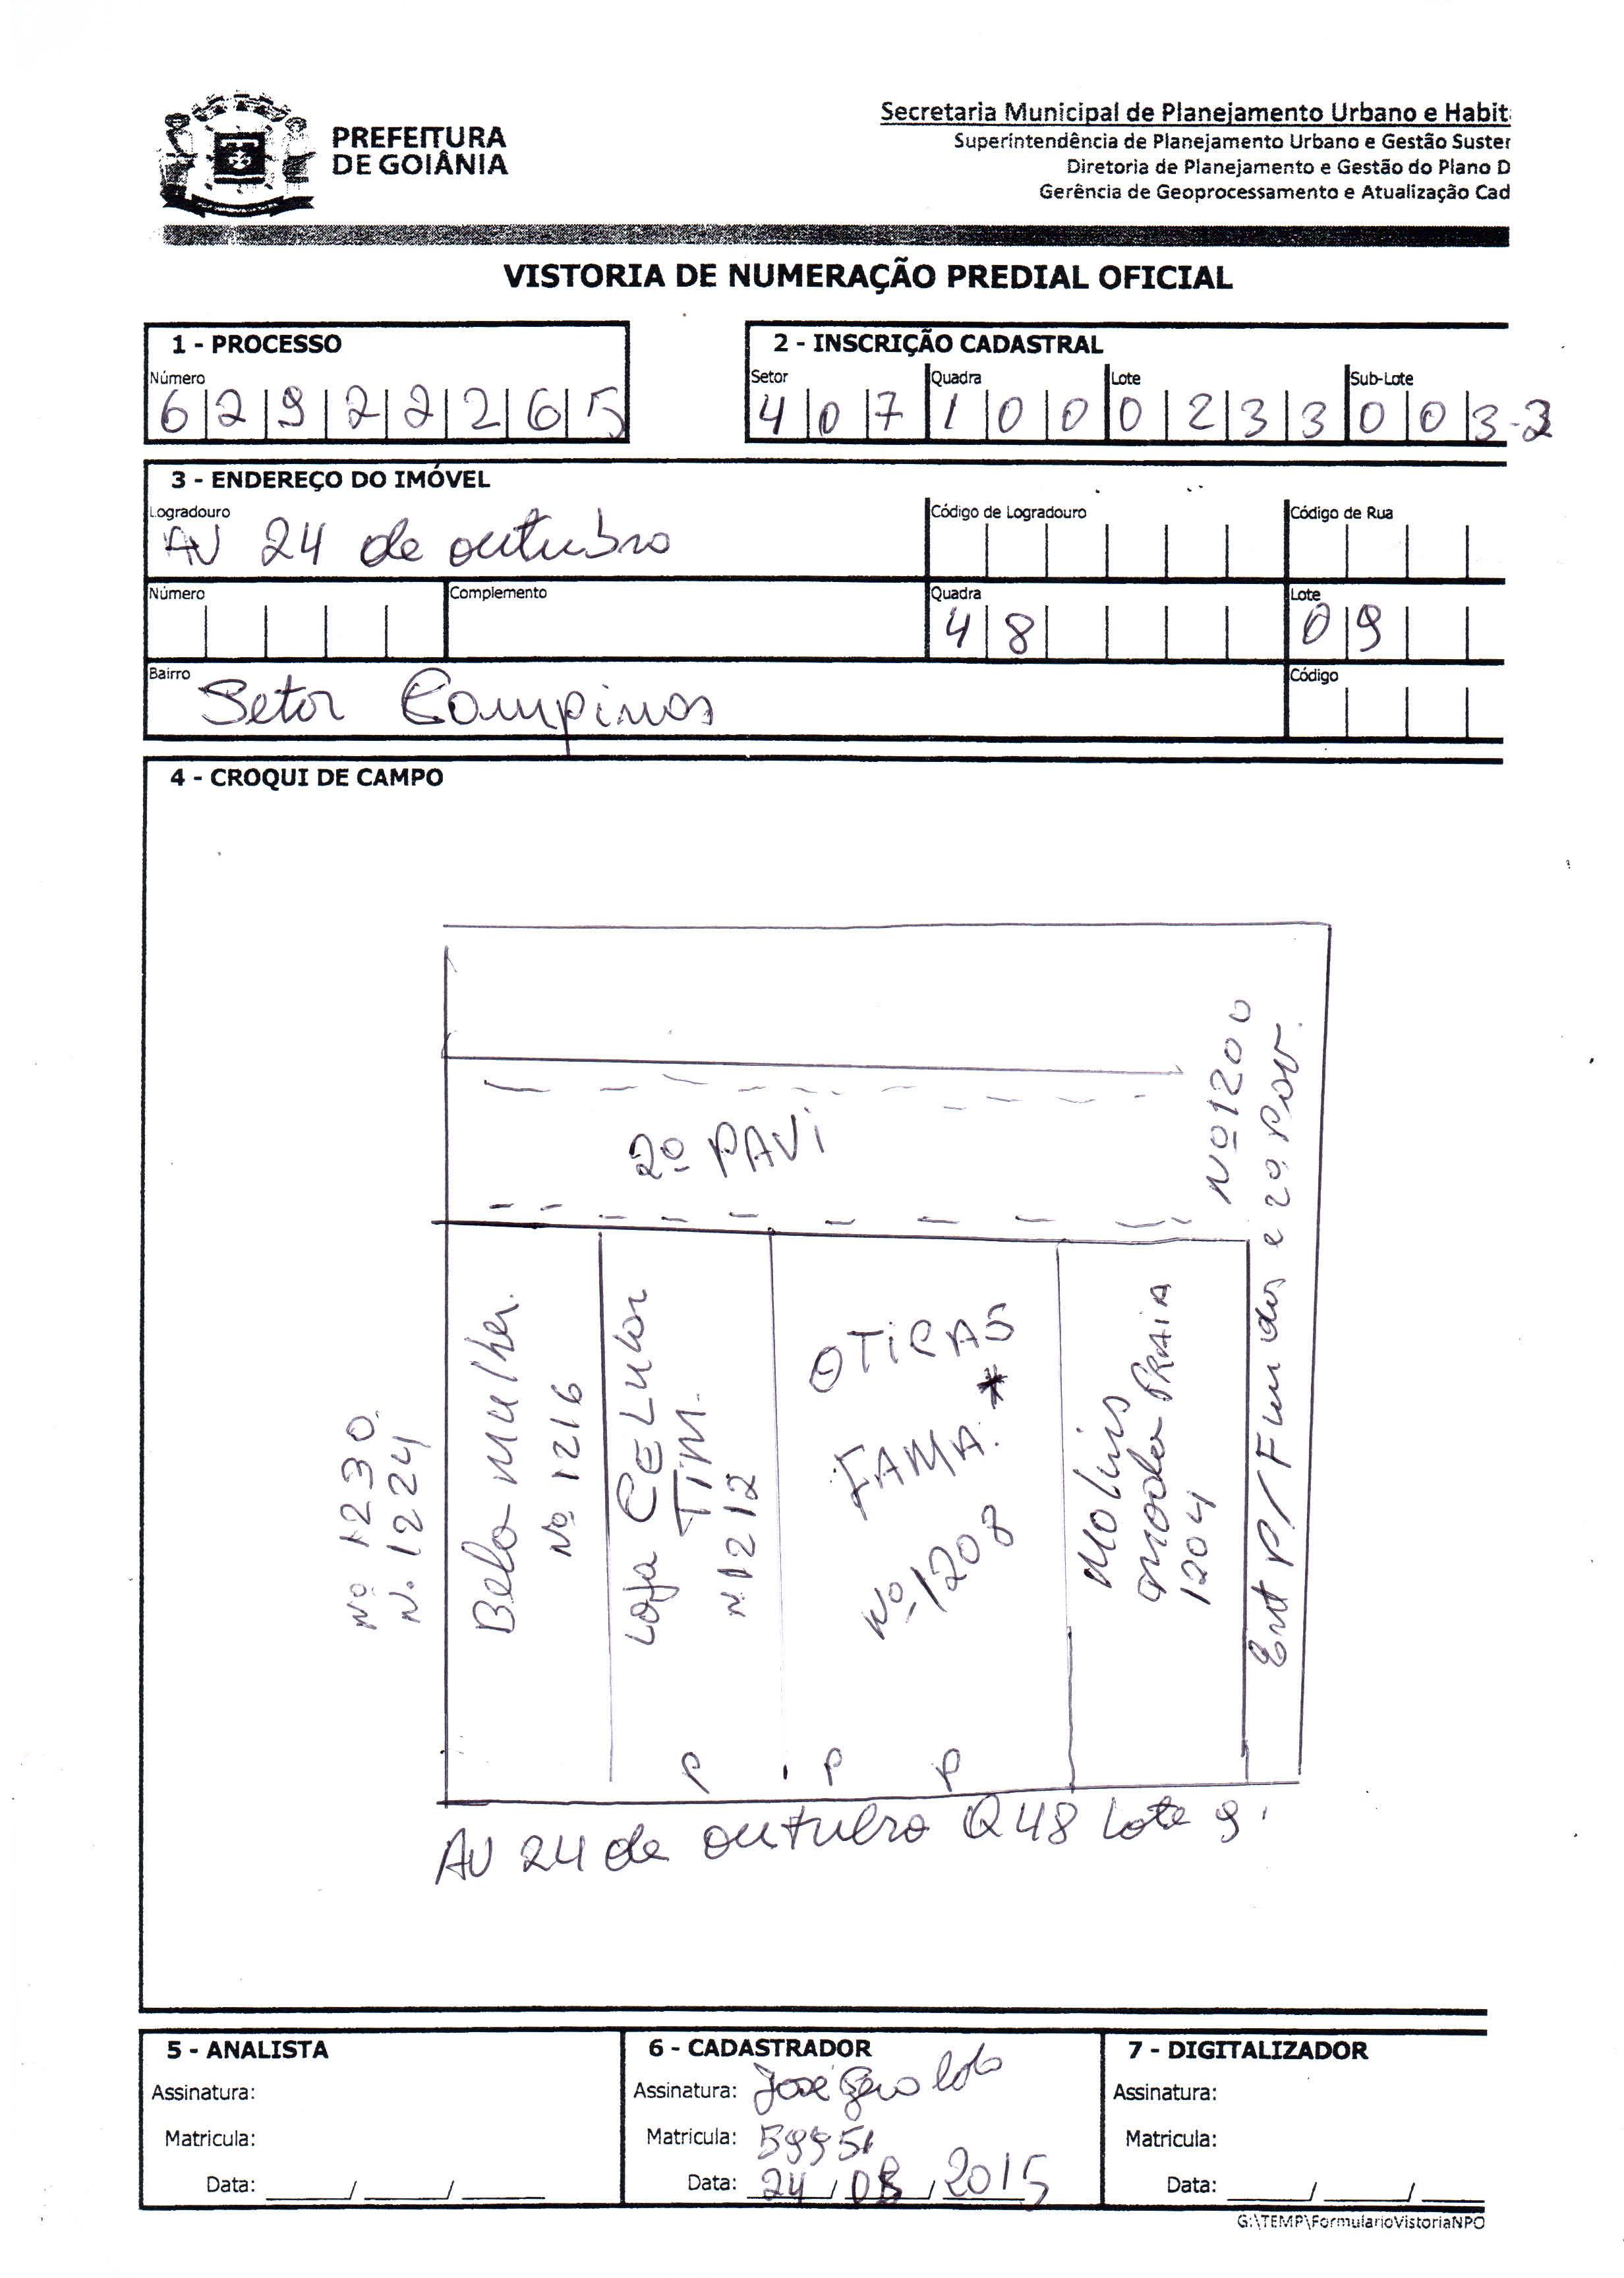 PREFEITURA
DE GOIÂNIA
Secretaria Municipal de Planejamento Urbano e Habit
Superintendência de Planejamento Urbano e Gestão Suster
Diretoria de Planejamento e Gestão do Plano D
Gerência de Geoprocessamento e Atualização Cad
VISTORIA DE NUMERAÇÃO PREDIAL OFICIAL
1 - PROCESSO
Número
6 2 9 2 2 2 6 5
2 - INSCRIÇÃO CADASTRAL
Setor Quadra Lote Sub-Lote
4 0 7 1 0 0 0 2 3 3 0 0 3-2
3 - ENDEREÇO DO IMÓVEL
Logradouro Código de Logradouro Código de Rua
AV 24 de outubro
Número Complemento Quadra Lote
4 8 0 9
Bairro Código
Setor Campinas
4 - CROQUI DE CAMPO
Nº 1200
2º PAVI
Ent P/ Fundos e 2º Pav.
Nº 1230
N. 1224
Bela mulher.
Nº 1216
Loja CELular
TIM.
N. 1212
OTICAS
FAMA.
Nº 1208
Molins
moda PRAIA
1204
P P P
AV 24 de outubro Q 48 Lote 9.
5 - ANALISTA
Assinatura:
Matricula:
Data: ____/____/____
6 - CADASTRADOR
Assinatura: José
Matricula:
Data: 24/08/2015
7 - DIGITALIZADOR
Assinatura:
Matricula:
Data: ____/____/____
G:\TEMP\FormularioVistoriaNPO